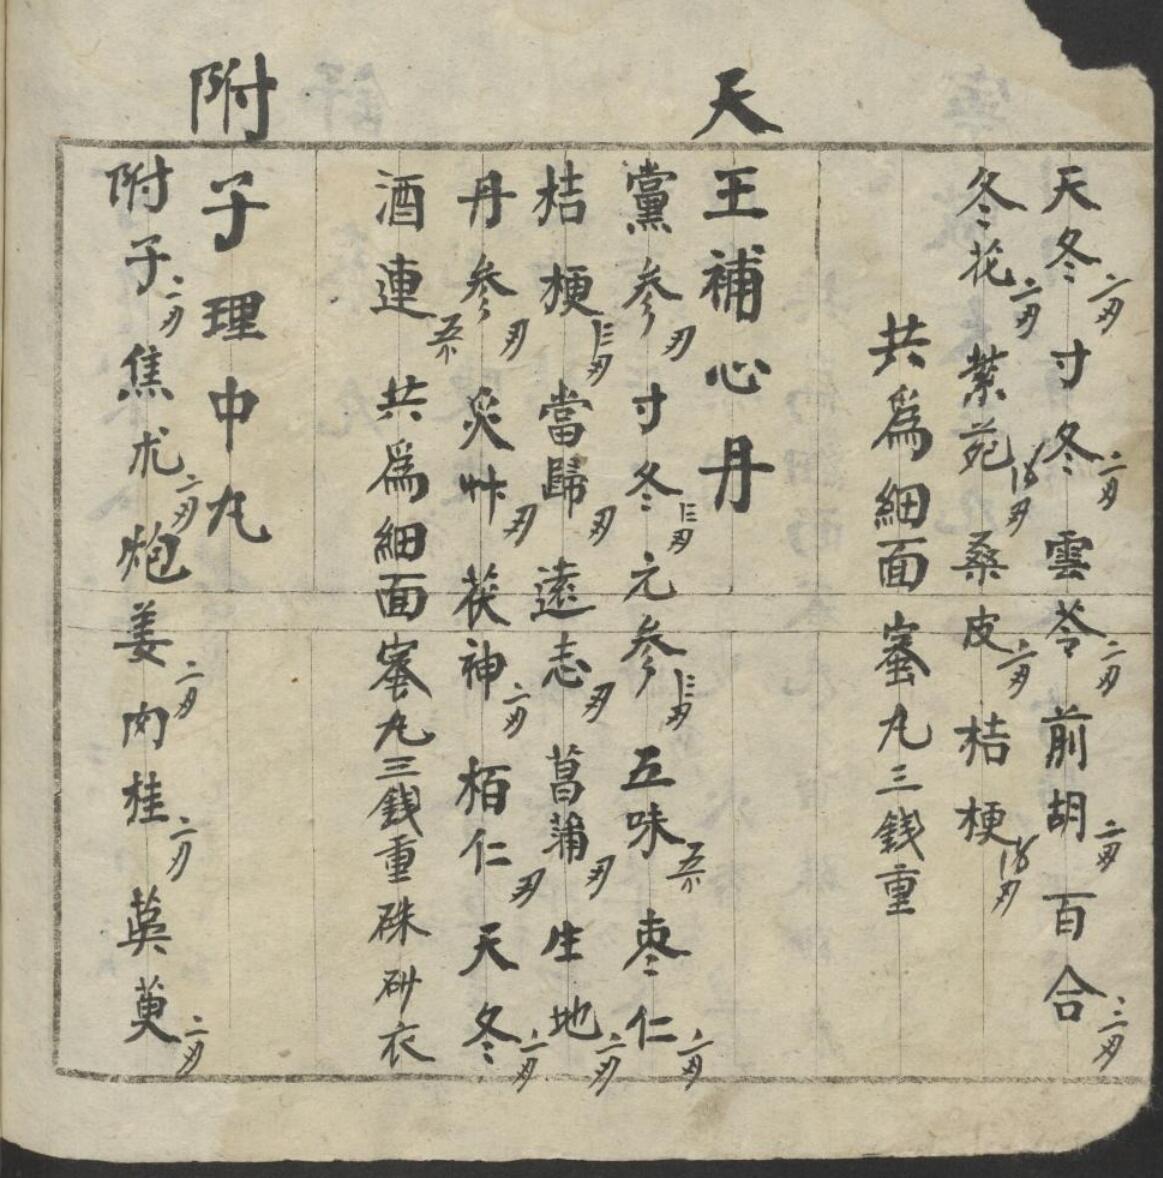 天冬二両寸冬二両雲苓二両前胡二両百合二両
冬花二両紫苑両桑皮二両桔梗両
共爲細面蜜丸三錢重
天王補心丹
黨参両寸冬両元参両五味枣仁二両
桔梗両當歸両遠志両菖蒲両生地二両
丹参両炙艸両茯神二両栢仁両天冬二両
酒連共爲細面蜜丸三錢重硃砂衣
附子理中丸
附子二両焦朮二両炮姜二両肉桂二両英萸二両